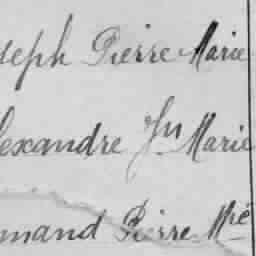 seph Pierre Marie
lexandre Jn Marie
mand Pierre Mié